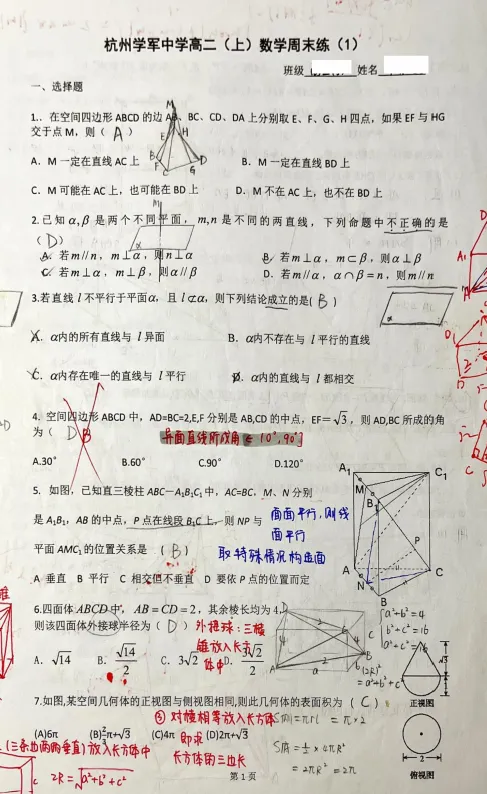 杭州学军中学高二（上）数学周末练（1）
班级 姓名
一、选择题
1．在空间四边形 ABCD 的边 AB、BC、CD、DA 上分别取 E、F、G、H 四点，如果 EF 与 HG
交于点 M，则（ A ）
A．M 一定在直线 AC 上 B．M 一定在直线 BD 上
C．M 可能在 AC 上，也可能在 BD 上 D．M 不在 AC 上，也不在 BD 上
2.已知 α,β 是两个不同平面，m,n 是不同的两直线，下列命题中不正确的是
（ D ）
A．若 m//n，m⊥α，则 n⊥α B．若 m⊥α，m⊂β，则 α⊥β
C．若 m⊥α，m⊥β，则 α//β D．若 m//α，α∩β=n，则 m//n
3.若直线 l 不平行于平面 α，且 l⊄α，则下列结论成立的是( B )
A．α内的所有直线与 l 异面 B．α内不存在与 l 平行的直线
C．α内存在唯一的直线与 l 平行 D．α内的直线与 l 都相交
4．空间四边形 ABCD 中，AD=BC=2,E,F 分别是 AB,CD 的中点，EF=√3，则 AD,BC 所成的角
为（ D ）B
异面直线所成角∈(0°,90°]
A.30° B.60° C.90° D.120°
5．如图，已知直三棱柱 ABC—A₁B₁C₁ 中，AC=BC，M、N 分别
是 A₁B₁，AB 的中点，P 点在线段 B₁C 上，则 NP 与
面面平行，则线
面平行
平面 AMC₁ 的位置关系是 （ B ）
取特殊情况构造面
A 垂直 B 平行 C 相交但不垂直 D 要依 P 点的位置而定
A₁ C₁
M
B₁
P
A C
N
B
6.四面体 ABCD 中，AB=CD=2，其余棱长均为 4，
则该四面体外接球半径为（ D ）
外接球：三棱
锥放入长方
体中
A．√14 B．√14/2 C．3√2 D．3√2/2
a²+b²=4
b²+c²=16
a²+c²=16
(2R)²
=a²+b²+c²
7.如图,某空间几何体的正视图与侧视图相同,则此几何体的表面积为（ C ）
④ 对棱相等放入长方体
即求
长方体的三边长
(A)6π (B)⅔π+√3 (C)4π (D)2π+√3
=πrl=π×2
=½×4πR²
=2πR²=2π
正视图
2
俯视图
(三条边两两垂直) 放入长方体中
2R=√a²+b²+c²
第 1 页